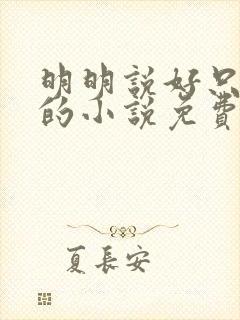 明明説好只
的小説免費
夏長安